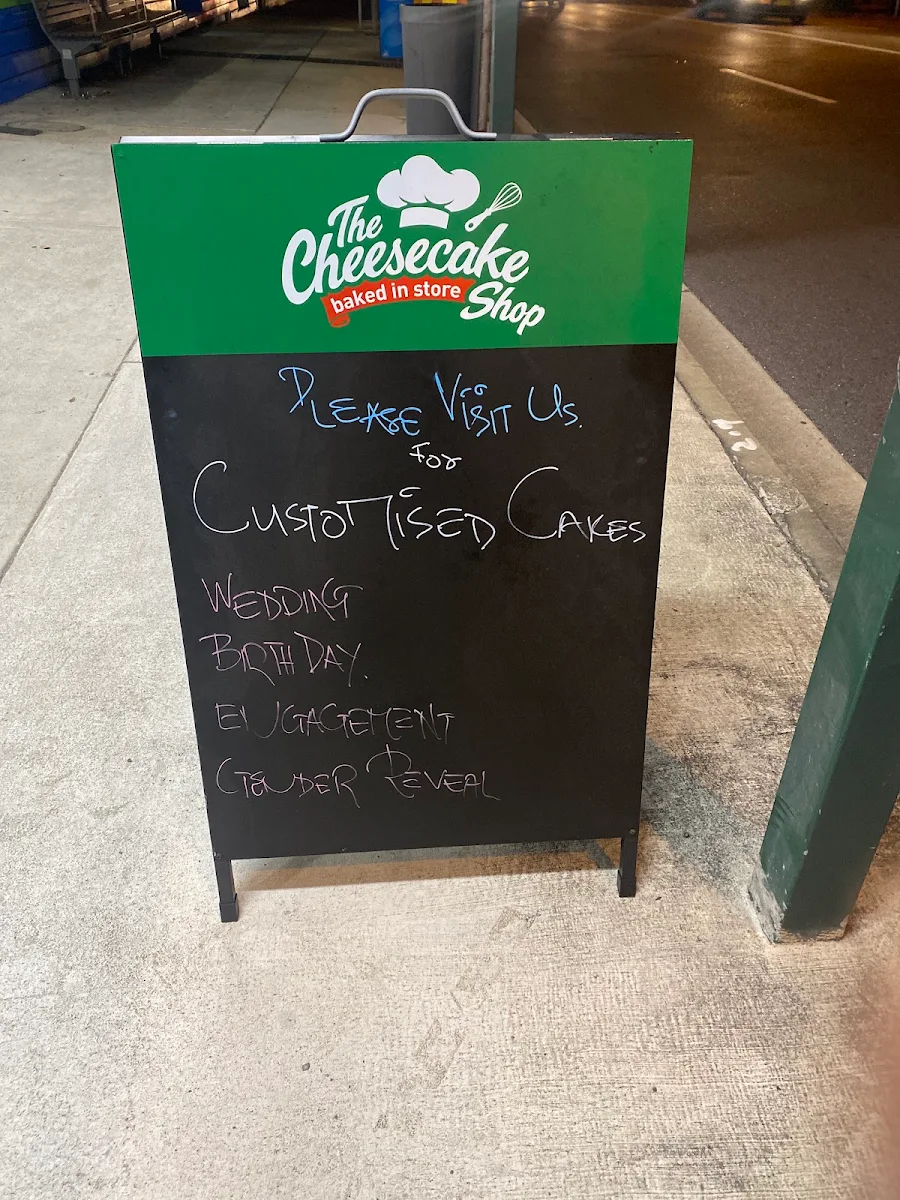 The
Cheesecake
baked in store
Shop
PLEASE VISIT US.
For
CUSTOMISED CAKES
WEDDING
BIRTHDAY.
ENGAGEMENT
GENDER REVEAL